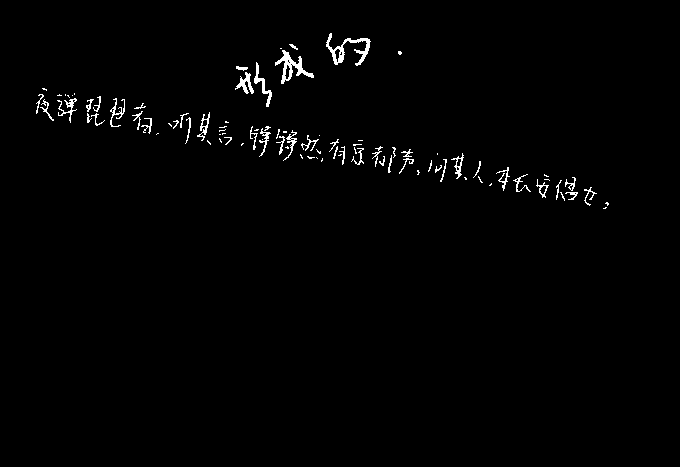 形成的.
夜弹琵琶者,听其言,铮铮然有京都声,问其人,本长安倡女,